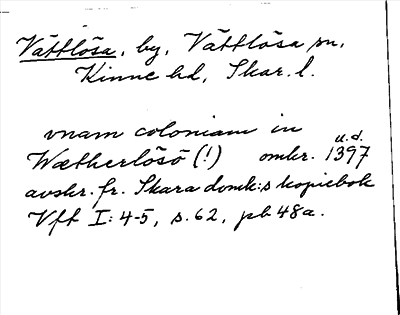 Vättlösa, by, Vättlösa sn,
Kinne hd, Skar. l.
vnam coloniam in
u.d.
Wætherlösö (!) omkr. 1397
avskr. fr. Skara domk:s kopiebok
Vft I: 4-5, s. 62, pb 48a.